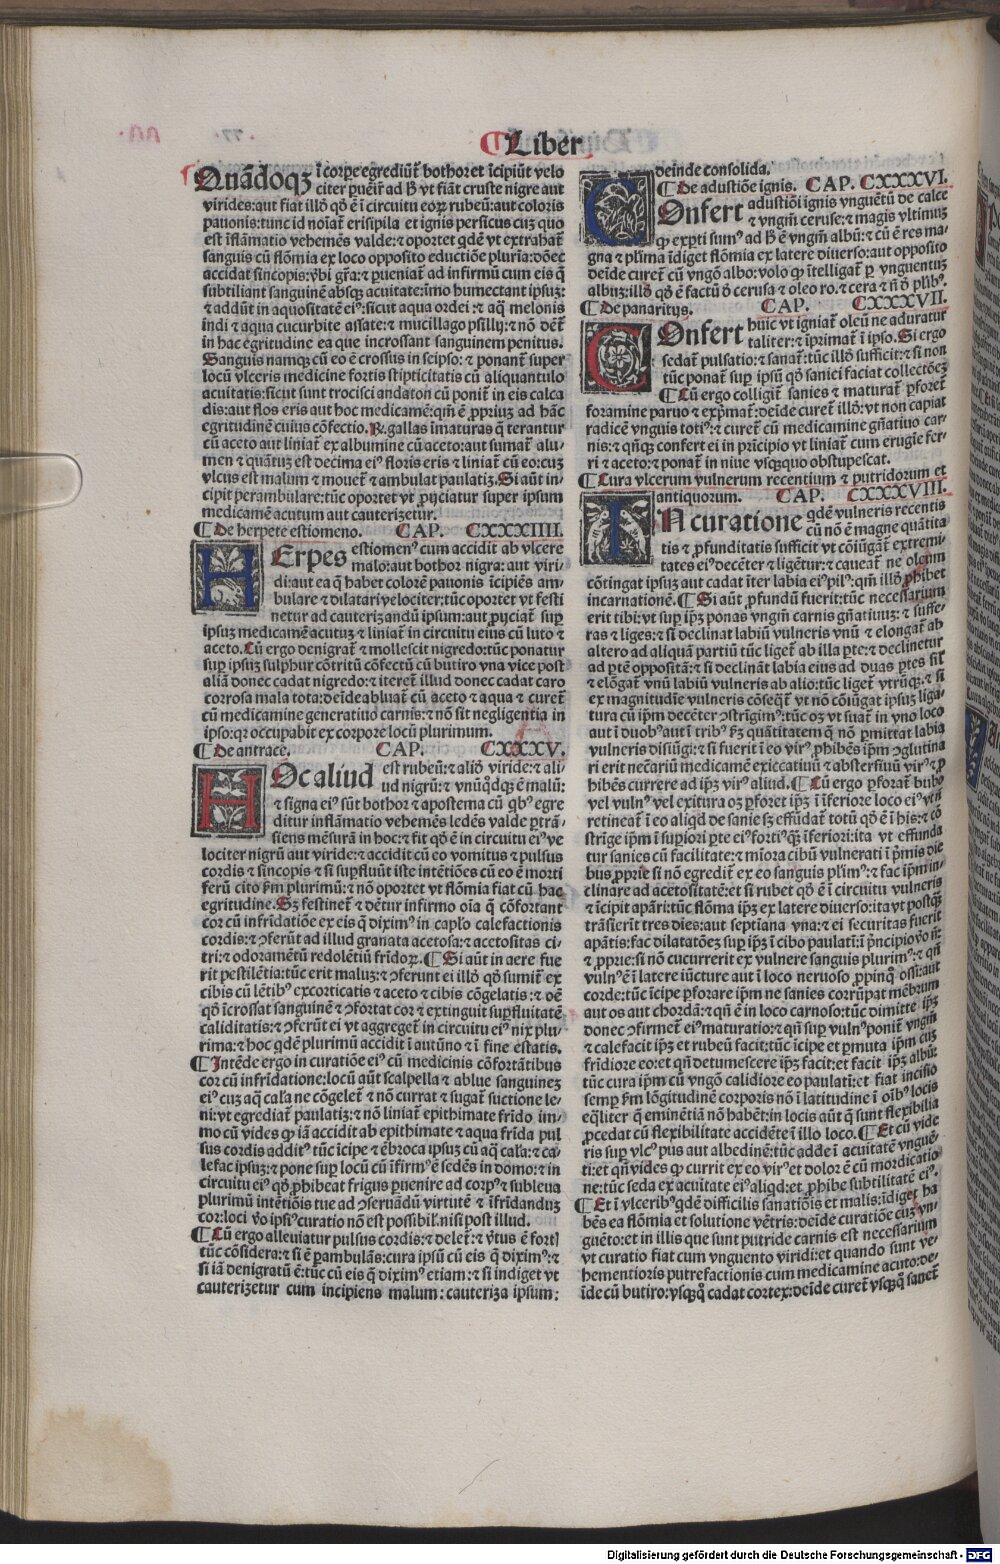 ¶Liber
Quãdoqꝫ ĩ corꝑe egrediũt̃ bothor: et ĩcipiũt velo
citer puẽir̃ ad ħ vt fiãt cruste nigre aut
virides: aut fiat illđ qđ ẽ ĩ circuitu eoꝝ rubeũ: aut coloris
pauonis: tunc id noĩat̃ erisipila et ignis persicus cuꝫ quo
est ĩflãmatio vehemẽs valde: ⁊ oportet qdẽ vt extrahat̃
sanguis cũ flõmia ex loco opposito eductiõe pluria: dõec
accidat sincopis: ỹbi gr̃a: ⁊ ꝑueniat̃ ad infirmũ cum eis q̃
subtiliant sanguinẽ absqꝫ acuitate: ĩmo humectant ipsuꝫ:
⁊ addũt in aquositatẽ eiꝰ: sicut aqua ordei: ⁊ aq̃ melonis
indi ⁊ aqua cucurbite assate: ⁊ mucillago psillij: ⁊ nõ dẽt̃
in hac egritudine ea que incrossant sanguinem penitus.
Sanguis namqꝫ cũ eo ẽ crossus in seipso: ⁊ ponant̃ super
locũ vlceris medicine fortis stipticitatis cũ aliquantulo
acuitatis: sicut sunt trocisci andaron cũ ponit̃ in eis calca
dis: aut flos eris aut hoc medicamẽ: qm̃ ẽ ꝓprius ad hãc
egritudinẽ cuius cõfectio. ℞. gallas imaturas q̃ terantur
cũ aceto aut liniat̃ ex albumine cũ aceto: aut sumat̃ alu-
men ⁊ quãtuꝫ est decima eiꝰ floris eris ⁊ liniat̃ cũ eo: cuꝫ
vlcus est malum ⁊ mouet̃ ⁊ ambulat paulatiꝫ. Si aũt in-
cipit perambulare: tũc oportet vt ꝓijciatur super ipsum
medicamẽ acutum aut cauterizetur.
¶De herpete estiomeno. CAP. CXXXIIII.
HErpes estiomenꝰ cum accidit ab vlcere
malo: aut bothor nigra: aut viri-
di: aut ea q̃ habet colorẽ pauonis ĩcipiẽs am-
bulare ⁊ dilatari velociter: tũc oportet vt festi
netur ad cauterizandũ ipsum: aut ꝓijciat̃ suꝑ
ipsuꝫ medicamẽ acutuꝫ ⁊ liniat̃ in circuitu eius cũ luto ⁊
aceto. Cũ ergo denigrat̃ ⁊ mollescit nigredo: tũc ponatur
suꝑ ipsuꝫ sulphur cõtritũ cõfectũ cũ butiro vna vice post
aliã donec cadat nigredo: ⁊ iteret̃ illud donec cadat caro
corrosa mala tota: deĩde abluat̃ cũ aceto ⁊ aqua ⁊ curet̃
cũ medicamine generatiuo carnis: ⁊ nõ sit negligentia in
ipso: qꝛ occupabit ex corpore locũ plurimum.
¶De antrace. CAP. CXXXV.
HOc aliud est rubeũ: ⁊ aliđ viride: ⁊ ali-
ud nigrũ: ⁊ vnũqđqꝫ ẽ malũ:
⁊ signa eiꝰ sũt bothor ⁊ apostema cũ qbꝰ egre
ditur inflãmatio vehemẽs ledẽs valde ꝑtrã-
siens mẽsurã in hoc: ⁊ fit qđ ẽ in circuitu eiꝰ ve
lociter nigrũ aut viride: ⁊ accidit cũ eo vomitus ⁊ pulsus
cordis ⁊ sincopis ⁊ si suꝑfluũt iste intẽtiões cũ eo ẽ morti
ferũ cito ẜm plurimũ: ⁊ nõ oportet vt flõmia fiat cũ hac
egritudine. Sꝫ festinet̃ ⁊ dẽtur infirmo oĩa q̃ cõfortant
cor cũ infridatiõe ex eis q̃ diximꝰ in caplo calefactionis
cordis: ⁊ ↄferũt ad illud granata acetosa: ⁊ acetositas ci-
tri: ⁊ odoramẽtũ redolẽtiũ fridoꝝ. ¶Si aũt in aere fue
rit pestilẽtia: tũc erit maluꝫ: ⁊ ↄferunt ei illđ qđ sumit̃ ex
cibis cũ lẽtibꝰ excorticatis ⁊ aceto ⁊ cibis cõgelatis: ⁊ oẽ
qđ ĩcrossat sanguinẽ ⁊ ↄfortat cor ⁊ extinguit suꝑfluitatẽ
caliditatis: ⁊ ↄferũt ei vt aggreget̃ in circuitu eiꝰ nix plu-
rima: ⁊ hoc qdẽ plurimũ accidit ĩ autũno ⁊ ĩ fine estatis.
¶Intẽde ergo in curatiõe eiꝰ cũ medicinis cõfortãtibus
cor cũ infridatione: locũ aũt scalpella ⁊ ablue sanguineꝫ
eiꝰ cuꝫ aq̃ cala ne cõgelet̃ ⁊ nõ currat ⁊ sugat̃ suctione le-
ni: vt egrediat̃ paulatiꝫ: ⁊ nõ liniat̃ epithimate frido im-
mo cũ vides ꝙ iã accidit ab epithimate ⁊ aqua frida pul
sus cordis additꝰ tũc ĩcipe ⁊ ẽbroca ipsuꝫ cũ aq̃ cala: ⁊ ca-
lefac ipsuꝫ: ⁊ pone suꝑ locũ cũ ĩfirmꝰ ẽ sedẽs in domo: ⁊ in
circuitu eiꝰ qđ ꝓhibeat frigus ꝑuenire ad corpꝰ ⁊ subleua
plurimũ intẽtiõis tue ad ↄseruãdũ virtutẽ ⁊ ĩfridanduꝫ
cor: loci vo ipsiꝰ curatio nõ est possibil. nisi post illud.
¶Cũ ergo alleuiatur pulsus cordis: ⁊ delet̃: ⁊ ṽtus ẽ fort
tũc cõsidera: ⁊ si ẽ ꝑambulãs: cura ipsũ cũ eis q̃ diximꝰ: ⁊
si iã denigratũ ẽ: tũc cũ eis q̃ diximꝰ etiam: ⁊ si indiget vt
cauterizetur cum incipiens malum: cauteriza ipsum:
deinde consolida.
¶De adustiõe ignis. CAP. CXXXVI.
COnfert adustiõi ignis vnguẽtũ de calce
⁊ vngm̃ ceruse: ⁊ magis vltimuꝫ
ꝙ exꝑti sumꝰ ad ħ ẽ vngm̃ albũ: ⁊ cũ ẽ res ma-
gna ⁊ pl'ima ĩdiget flõmia ex latere diuerso: aut opposito
deĩde curet̃ cũ vngõ albo: volo ꝙ ĩtelligat̃ ꝑ vnguentuꝫ
albuꝫ: illđ qđ ẽ factũ đ cerusa ⁊ oleo ro. ⁊ cera ⁊ ñ đ plĩbꝰ.
¶De panaritijs. CAP. CXXXVII.
COnfert huic vt igniat̃ oleũ ne aduratur
taliter: ⁊ ĩprimat̃ ĩ ipso. Si ergo
sedat̃ pulsatio: ⁊ sanat̃: tũc illđ sufficit: ⁊ si non
tũc ponat̃ suꝑ ipsũ qđ saniei faciat collectõeꝫ
¶Cũ ergo colligit̃ sanies ⁊ maturat̃ ꝑforet̃
foramine paruo ⁊ exꝑmat̃: deĩde curet̃ illđ: vt non capiat
radicẽ vnguis totiꝰ: ⁊ curet̃ cũ medicamine gñatiuo car-
nis: ⁊ qñqꝫ confert ei in prĩcipio vt liniat̃ cum erugĩe fer-
ri ⁊ aceto: ⁊ ponat̃ in niue vsqꝫquo obstupescat.
¶Cura vlcerum vulnerum recentium ⁊ putridorum et
antiquorum. CAP. CXXXVIII.
IN curatione qdẽ vulneris recentis
cũ nõ ẽ magne quãtita
tis ⁊ ꝓfunditatis sufficit vt cõiũgat̃ extremi-
tates eiꝰ decẽter ⁊ ligẽtur: ⁊ caueat̃ ne oleum
cõtingat ipsuꝫ aut cadat ĩter labia eiꝰ pilꝰ: qm̃ illđ ꝓhibet
incarnationẽ. ¶Si aũt ꝓfundũ fuerit: tũc necessarium
erit tibi: vt suꝑ ipꝫ ponas vngm̃ carnis gñatiuuꝫ: ⁊ suffe-
ras ⁊ liges: ⁊ si declinat labiũ vulneris vnũ ⁊ elongat̃ ab
altero ad aliquã partiũ tũc liget̃ ab illa ꝑte: ⁊ declinetur
ad ꝑtẽ oppositã: ⁊ si declinãt labia eius ad duas ꝑtes sil'
⁊ elõgat̃ vnũ labiũ vulneris ab alio: tũc liget̃ vtrũqꝫ: ⁊ si
ex magnitudĩe vulneris cõseqt̃ vt nõ cõiũgat ipsuꝫ liga-
tura cũ ipm̃ decẽter ↄstrĩgimꝰ: tũc oꝫ vt suat̃ in vno loco
aut ĩ duobꝰ aut ĩ tribꝰ ẜꝫ quãtitatem q̃ nõ ꝑmittat labia
vulneris disiũgi: ⁊ si fuerit ĩ eo virꝰ ꝓhibẽs ipm̃ ↄglutina
ri erit necariũ medicamẽ exiccatiuũ ⁊ abstersiuũ virꝰ ⁊ ꝓ
hibẽs currere ad ipꝫ virꝰ aliud. ¶Cũ ergo ꝑforat̃ bubo
vel vulnꝰ vel exitura oꝫ ꝑforet̃ ipꝫ ĩ ĩferiore loco eiꝰ vt ñ
retineat̃ ĩ eo aliqd de sanie sꝫ effũdat̃ totũ qđ ẽ ĩ his: ⁊ cõ
strĩge ipm̃ ĩ suꝑiori ꝑte eiꝰ fortiꝰ qꝫ ĩferiori: ita vt effunda
tur sanies cũ facilitate: ⁊ miora cibũ vulnerati ĩ pm̃is die
bus ꝓprie si nõ egredit̃ ex eo sanguis pl'imꝰ: ⁊ fac ipm̃ in-
clinare ad acetositatẽ: et si rubet qđ ẽ ĩ circuitu vulneris
⁊ ĩcipit apãri: tũc flõma ipꝫ ex latere diuerso: ita vt postqꝫ
trãsierit tres dies: aut septĩana vna: ⁊ ei securitas fuerit
apãtis: fac dilatatõeꝫ suꝑ ipꝫ ĩ cibo paulatĩ: ĩ pncipio vo ñ:
⁊ ꝓprie: si nõ cucurrerit ex vulnere sanguis plurimꝰ: ⁊ qñ
vulnꝰ ẽ ĩ latere iũcture aut ĩ loco neruoso ꝓpinqꝰ ossi: aut
corde: tũc ĩcipe ꝑforare ipm̃ ne sanies corrũpat mẽbrum
aut os aut chordã: ⁊ qñ ẽ in loco carnoso: tũc dimitte ipꝫ
donec ↄfirmet̃ eiꝰ maturatio: ⁊ qñ suꝑ vulnꝰ ponit̃ vngm̃
⁊ calefacit ipꝫ et rubeũ facit: tũc ĩcipe ⁊ ꝑmuta ipm̃ cuꝫ
frĩdiore eo: et qñ detumescere ipꝫ facit: et facit ipꝫ albũ:
tũc cura ipm̃ cũ vngõ calidiore eo paulatĩ: et fiat incisio
semꝑ ẜm lõgitudinẽ corporis nõ ĩ latitudine ĩ oĩbꝰ locis
eqliter q̃ eminẽtiã nõ habẽt: in locis aũt q̃ sunt flexibilia
ꝓcedat cũ flexibilitate accidẽte ĩ illo loco. ¶Et cũ vide
ris suꝑ vlcꝰ pus aut albedinẽ: tũc adde ĩ acuitatẽ vnguẽ-
ti: et qñ vides ꝙ currit ex eo virꝰ et dolor ẽ cũ mordicatio
ne: tũc seda ex acuitate eiꝰ aliqd: et ꝓhibe subtilitatẽ eiꝰ.
¶Et ĩ vlceribꝰ qdẽ difficilis sanatiõis et malis: ĩdiget ha
bẽs ea flõmia et solutione vẽtris: deĩde curatiõe cuꝫ vn-
guẽto: et in illis que sunt putride carnis est necessarium
vt curatio fiat cum vnguento viridi: et quando sunt ve-
hementioris putrefactionis cum medicamine acuto: de-
ĩde cũ butiro: vsqꝫqꝫ cadat cortex: deĩde curet̃ vsqꝫqꝫ sanet̃
Digitalisierung gefördert durch die Deutsche Forschungsgemeinschaft - DFG